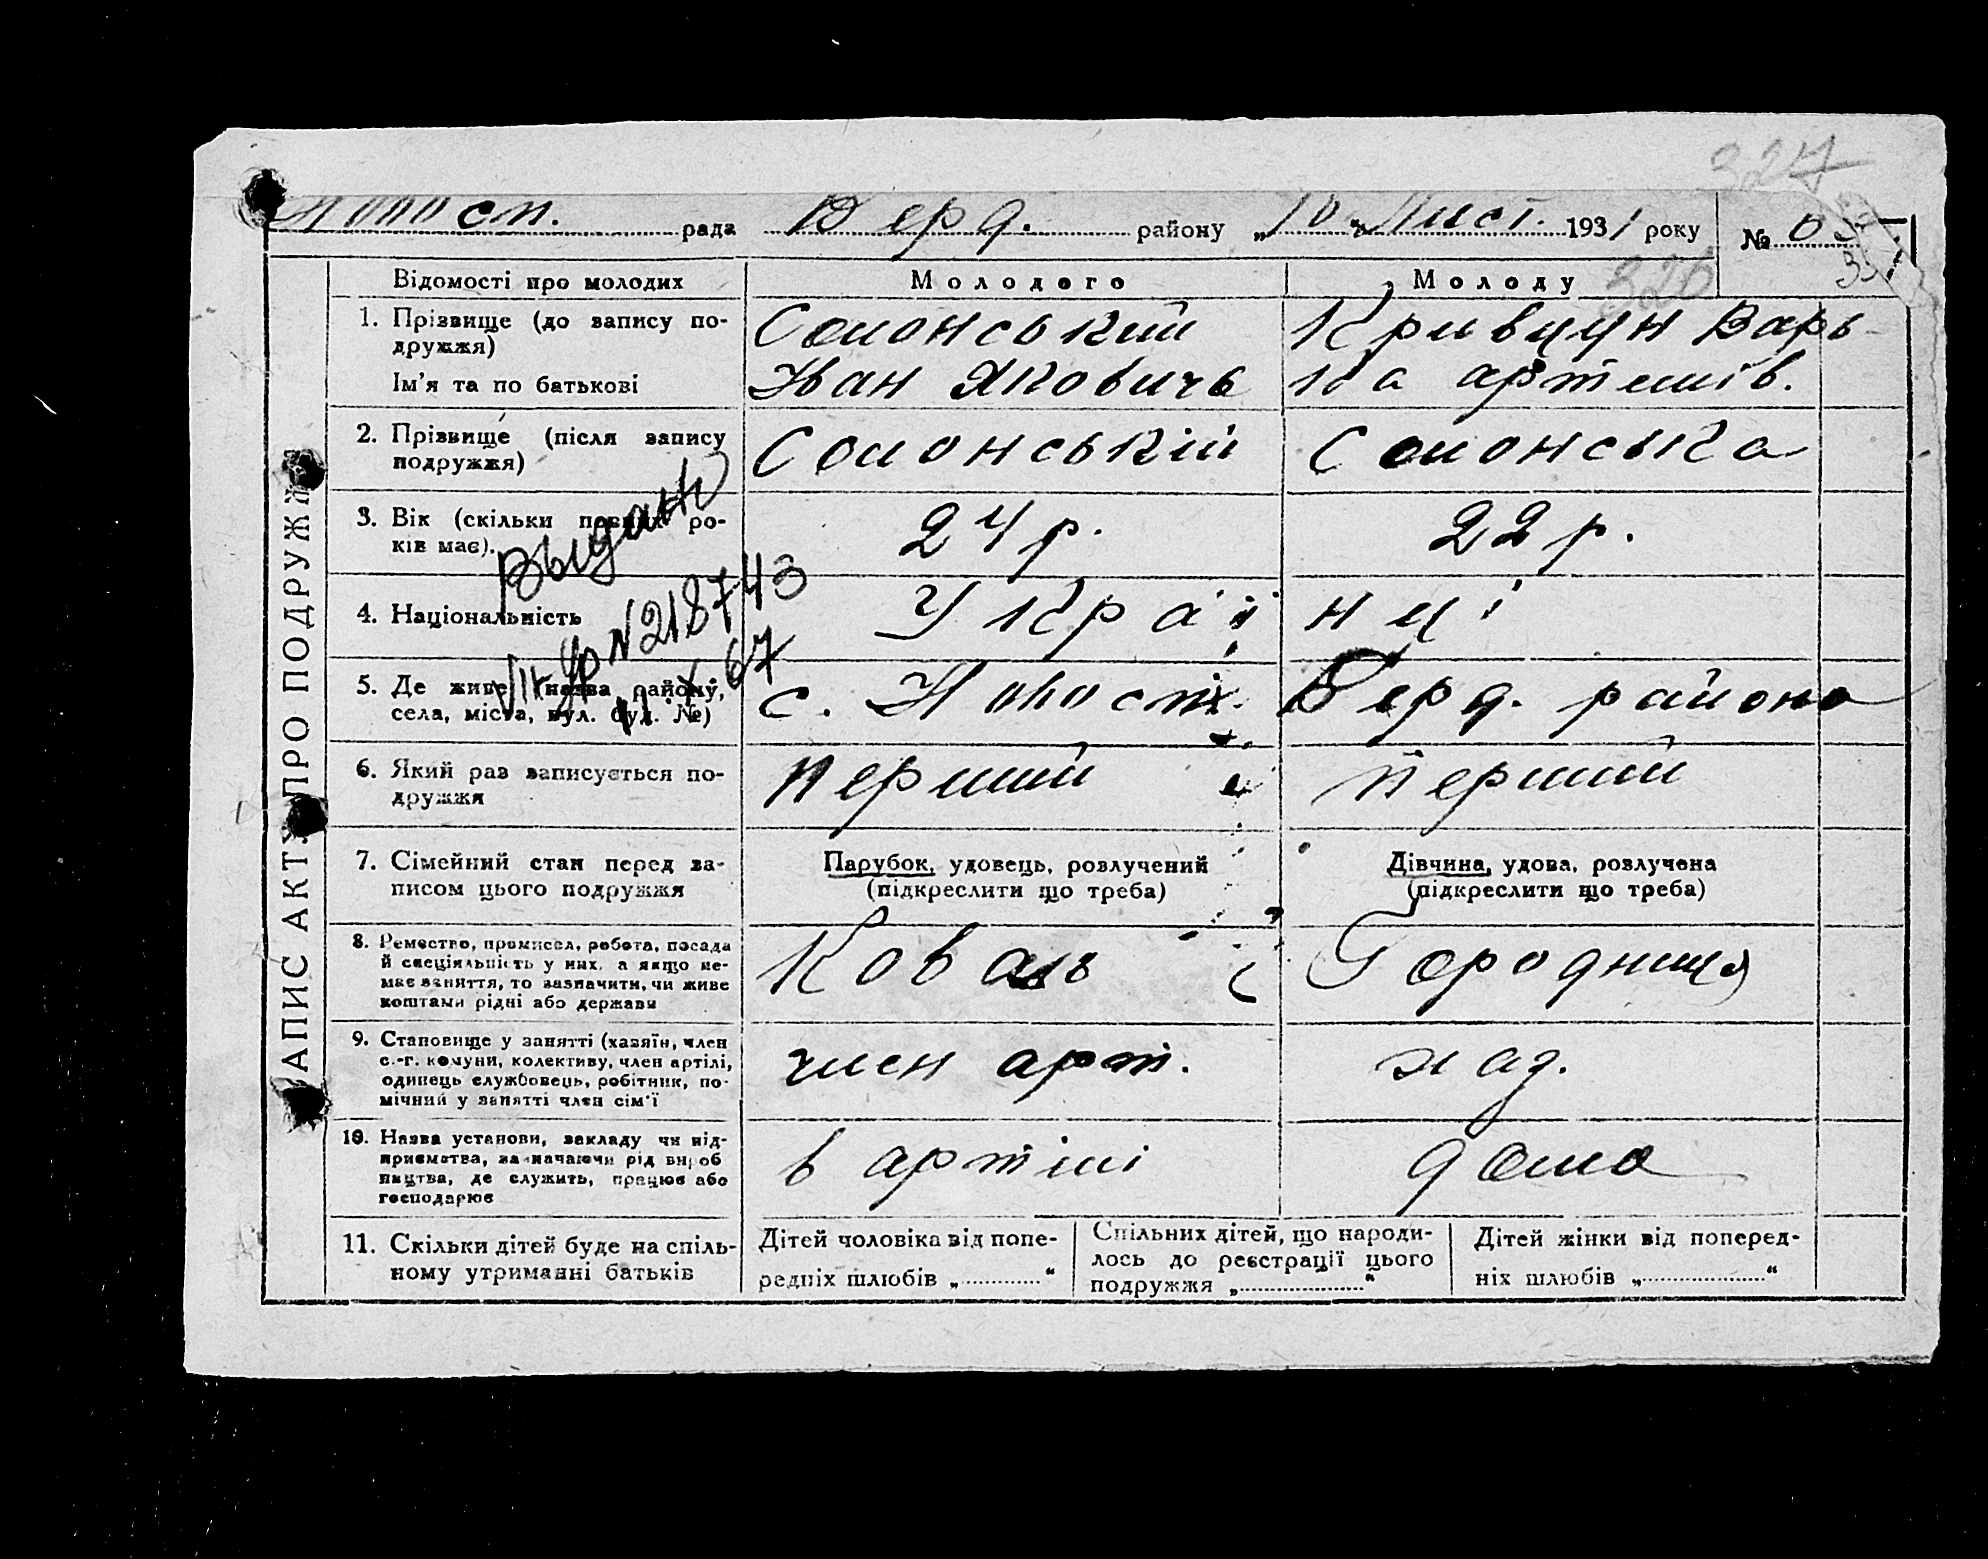 327
рада Берд. району „10“ Лист. 1931 року № 
326
Відомості про молодих Молодого Молоду
ЗАПИС АКТУ ПРО ПОДРУЖЖЯ
1. Прізвище (до запису по-
дружжя)
Ім'я та по батькові
Іван Якович
Кривцун Варь-
ка Артемів.
2. Прізвище (після запису
подружжя)
3. Вік (скільки повних ро-
ків має).
24 р. 22 р.
Выдано
№218743
67
4. Національність
Украї нці
5. Де живе (назва району,
села, міста, вул. буд. №)
с. Берд. района
6. Який раз записується по-
дружжя
перший перший
7. Сімейний стан перед за-
писом цього подружжя
Парубок, удовець, розлучений
(підкреслити що треба)
Дівчина, удова, розлучена
(підкреслити що треба)
8. Ремество, промисел, робота, посада
й спеціяльність у них, а якщо не-
має заняття, то зазначити, чи живе
коштами рідні або держави
Коваль
9. Становище у занятті (хазяїн, член
с.-г. комуни, колективу, член артілі,
одинець службовець, робітник, по-
мічний у занятті член сім'ї
член арт.
10. Назва установи, закладу чи під-
приємства, зазначаючи рід вироб
ництва, де служить, працює або
господарює
в артілі дома
11. Скільки дітей буде на спіль-
ному утриманні батьків
Дітей чоловіка від попе-
редніх шлюбів „ “
Спільних дітей, що народи-
лось до реєстрації цього
подружжя „ “
Дітей жінки від поперед-
ніх шлюбів „ “